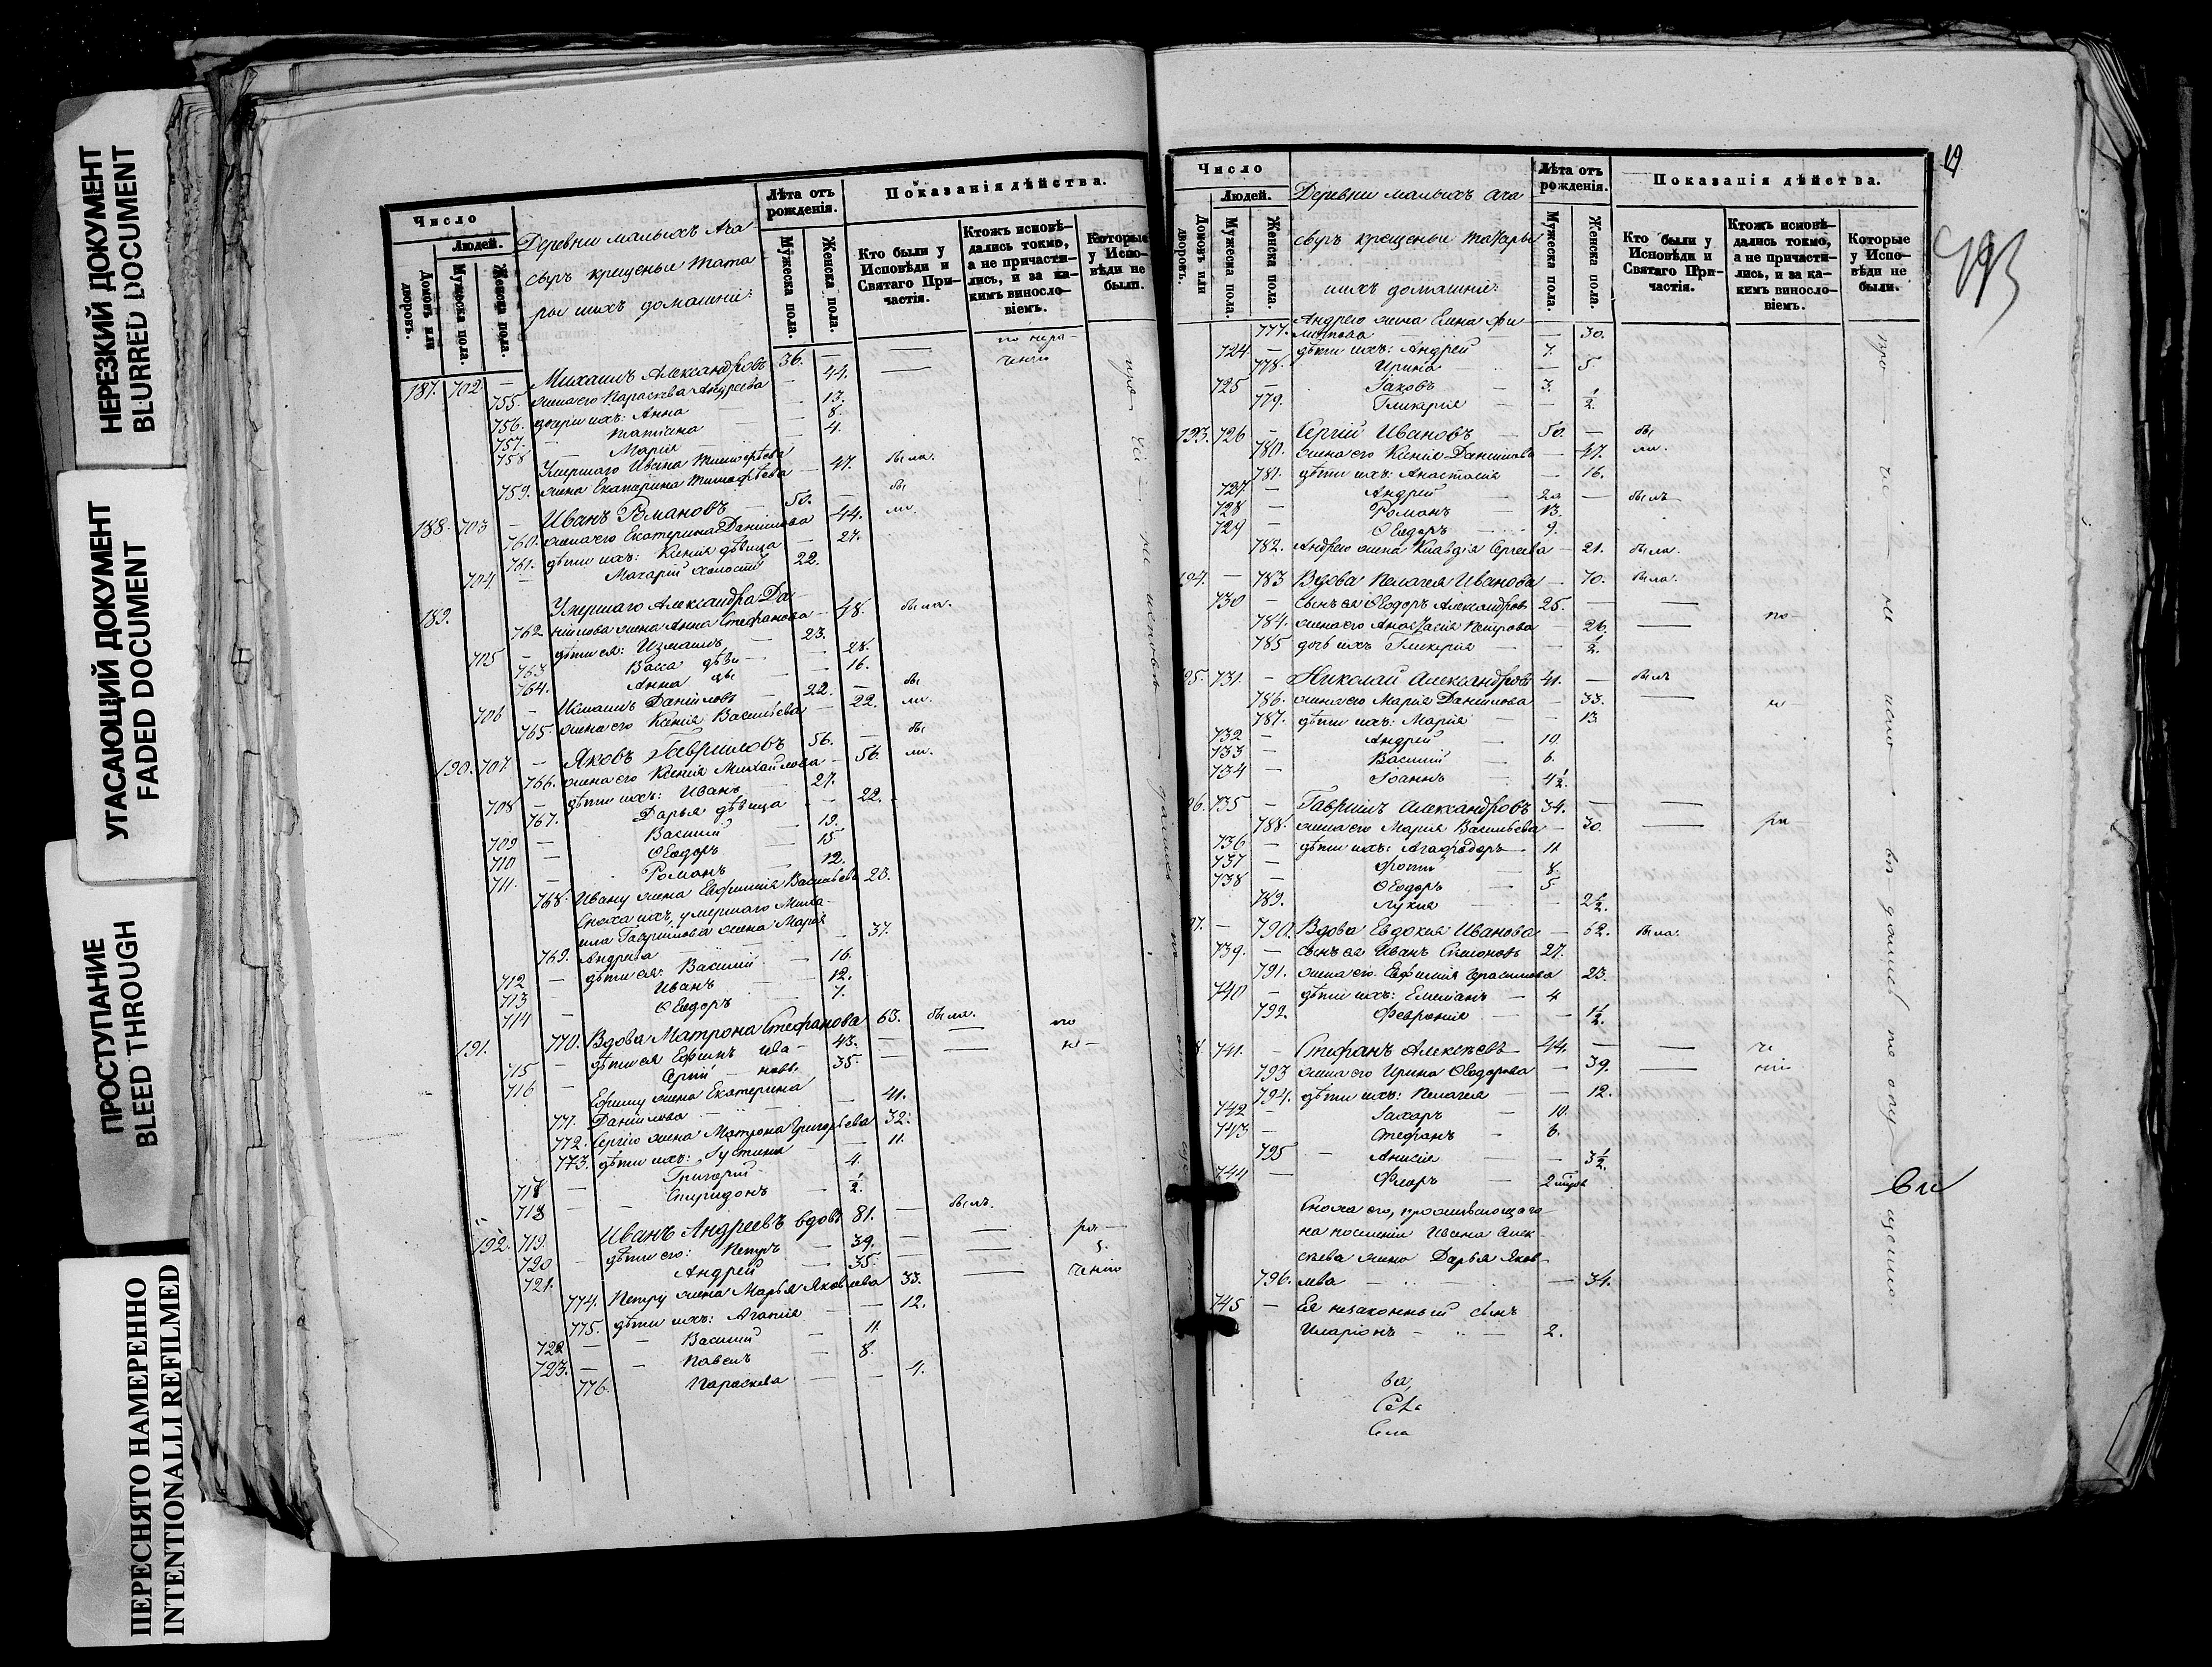 НЕРЕЗКИЙ ДОКУМЕНТ
BLURRED DOCUMENT
УГАСАЮЩИЙ ДОКУМЕНТ
FADED DOCUMENT
ПРОСТУПАНИЕ
BLEED THROUGH
ПЕРЕСНЯТО НАМЕРЕННО
INTENTIONALLI REFILMED
Число
Людей.
Домовъ или дворовъ.
Мужеска пола.
Женска пола.
Деревни малыхъ Ача
сыръ крещеные тата
ры ихъ домашніе:
Лѣта отъ рожденія.
Мужеска пола.
Женска пола.
Показанія дѣйства.
Кто были у Исповѣди и Святаго Причастія.
Ктожъ исповѣдались токмо, а не причастились, и за какимъ винословіемъ.
Которые у Исповѣди не были.
187. 702 — Михаилъ Александровъ 36. —
755. жена его Параскева Андреева — 44.
756. дочери ихъ: Анна — 13.
757. Татіана — 8.
758 Марія — 4.
Умершаго Ивана Тимофѣева
759. жена Екатерина Тимофѣева — 47. была.
188. 703 — Иванъ Романовъ — 50. — бы
760. жена его Екатерина Данилова 44. ли.
761. дѣти ихъ: Ксенія дѣвица — 27.
704 — Макарій холостъ 22.
189. Умершаго Александра Да-
762. нилова жена Анна Стефанова — 48. была.
705 — дѣти ея: Измаилъ — 23.
763 Васса дѣви — 28.
764. Анна — 16.
706 — Измаилъ Даниловъ — 22. — бы
765. жена его Ксенія Васильева — 22. ли.
190. 707. — Яковъ Гавриловъ 56. — бы
766. жена его Ксенія Михайлова — 56. ли.
708 — дѣти ихъ: Иванъ — 27.
767. Дарья дѣвица — 22.
709 — Василій — 19.
710 — Ѳеодоръ — 15
711. — Романъ — 12.
768. Ивану жена Евфимія Васильева 23.
Сноха ихъ, умершаго Миха-
ила Гаврилова жена Марія
769. Андреева — 37.
712 — дѣти ея: Василій — 16.
713 — Иванъ — 12.
714 — Ѳеодоръ — 7.
191. 770. Вдова Матрона Стефанова 63. была.
715 — дѣти ея Ефимъ Ива- 43. —
716 — Сергій — новы. 35.
Ефиму жена Екатерина
771. Данилова — 41.
772. Сергію жена Матрона Григорьева 32.
773. дѣти ихъ: Іустина — 11.
717 — Григорій — 4.
718 — Спиридонъ — ½.
192. 719. Иванъ Андреевъ вдовъ 81. — былъ.
720 — дѣти его: Петръ — 39. —
721. Андрей — 35. —
774. Петру жена Марья Яковлева 33.
775. дѣти ихъ: Агапія — 12.
722 — Василій — 11.
723. — Павелъ — 8.
776. Параскева — 4.
19
493
Число
Людей.
Домовъ или дворовъ.
Мужеска пола.
Женска пола.
Деревни малыхъ Ача
сыръ крещеные татары
ихъ домашніе:
Лѣта отъ рожденія.
Мужеска пола.
Женска пола.
Показанія дѣйства.
Кто были у Исповѣди и Святаго Причастія.
Ктожъ исповѣдались токмо, а не причастились, и за какимъ винословіемъ.
Которые у Исповѣди не были.
Андрею жена Елена Фи
777. липпова — 30.
724 — дѣти ихъ: Андрей — 7.
778. Ирина — 5.
725 — Іаковъ — 3.
779. Гликерія — ½.
193. 726 — Сергій Ивановъ — 50. — бы
780. жена его Ксенія Данилова — 47. ли.
781. дѣти ихъ: Анастасія — 16.
727. — Андрей — 20 — былъ
728 — Романъ — 13.
729 — Ѳеодоръ — 9.
782. Андрею жена Клавдія Сергеева — 21. была.
194. — 783 Вдова Пелагея Иванова — 70. была.
730 — сынъ ея Ѳеодоръ Александровъ 25. —
784. жена его Анастасія Петрова — 26.
785 дочь ихъ Гликерія — ½.
195. 731. — Николай Александровъ 41. — былъ
786. жена его Марія Данилова — 33.
787. дѣти ихъ: Марія — 13
732 — Андрей — 10
733 — Василій — 6.
734 — Іоаннъ — 4½.
196. 735 — Гавріилъ Александровъ 34. —
788. жена его Марія Васильева — 30.
736 — дѣти ихъ: Агаѳодоръ — 11
737 — Фотій — 8.
738 — Ѳеодоръ — 5.
789. Лукія — 2½.
197. — 790. Вдова Евдокія Иванова — 62. была.
739. — сынъ ея Иванъ Симоновъ 27.
791. жена его Евфимія Герасимова 23.
740 — дѣти ихъ: Емеліанъ — 4
792. Февронія — 1½.
8. 741. — Стефанъ Алексѣевъ 44. —
793 жена его Ирина Ѳеодорова — 39.
794. дѣти ихъ: Пелагея — 12.
742 — Захаръ — 10.
743 — Стефанъ — 6.
795 — Анисія — 3½.
744 — Флоръ — 2
Сноха его, проживающаго
на поселеніи Ивана Алек-
сѣева жена Дарья Яков-
796. лева — 34.
745 — Ея незаконный сынъ
Иларіонъ — 2.